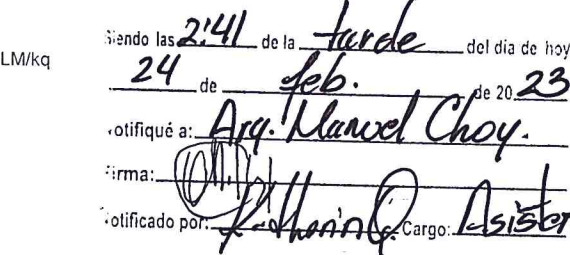 Siendo las 2:41 de la tarde del dia de hoy
LM/kq
24 de feb. de 2023
otifiqué a: Arq. Manuel Choy.
Firma:
otificado por: Cargo: Asister